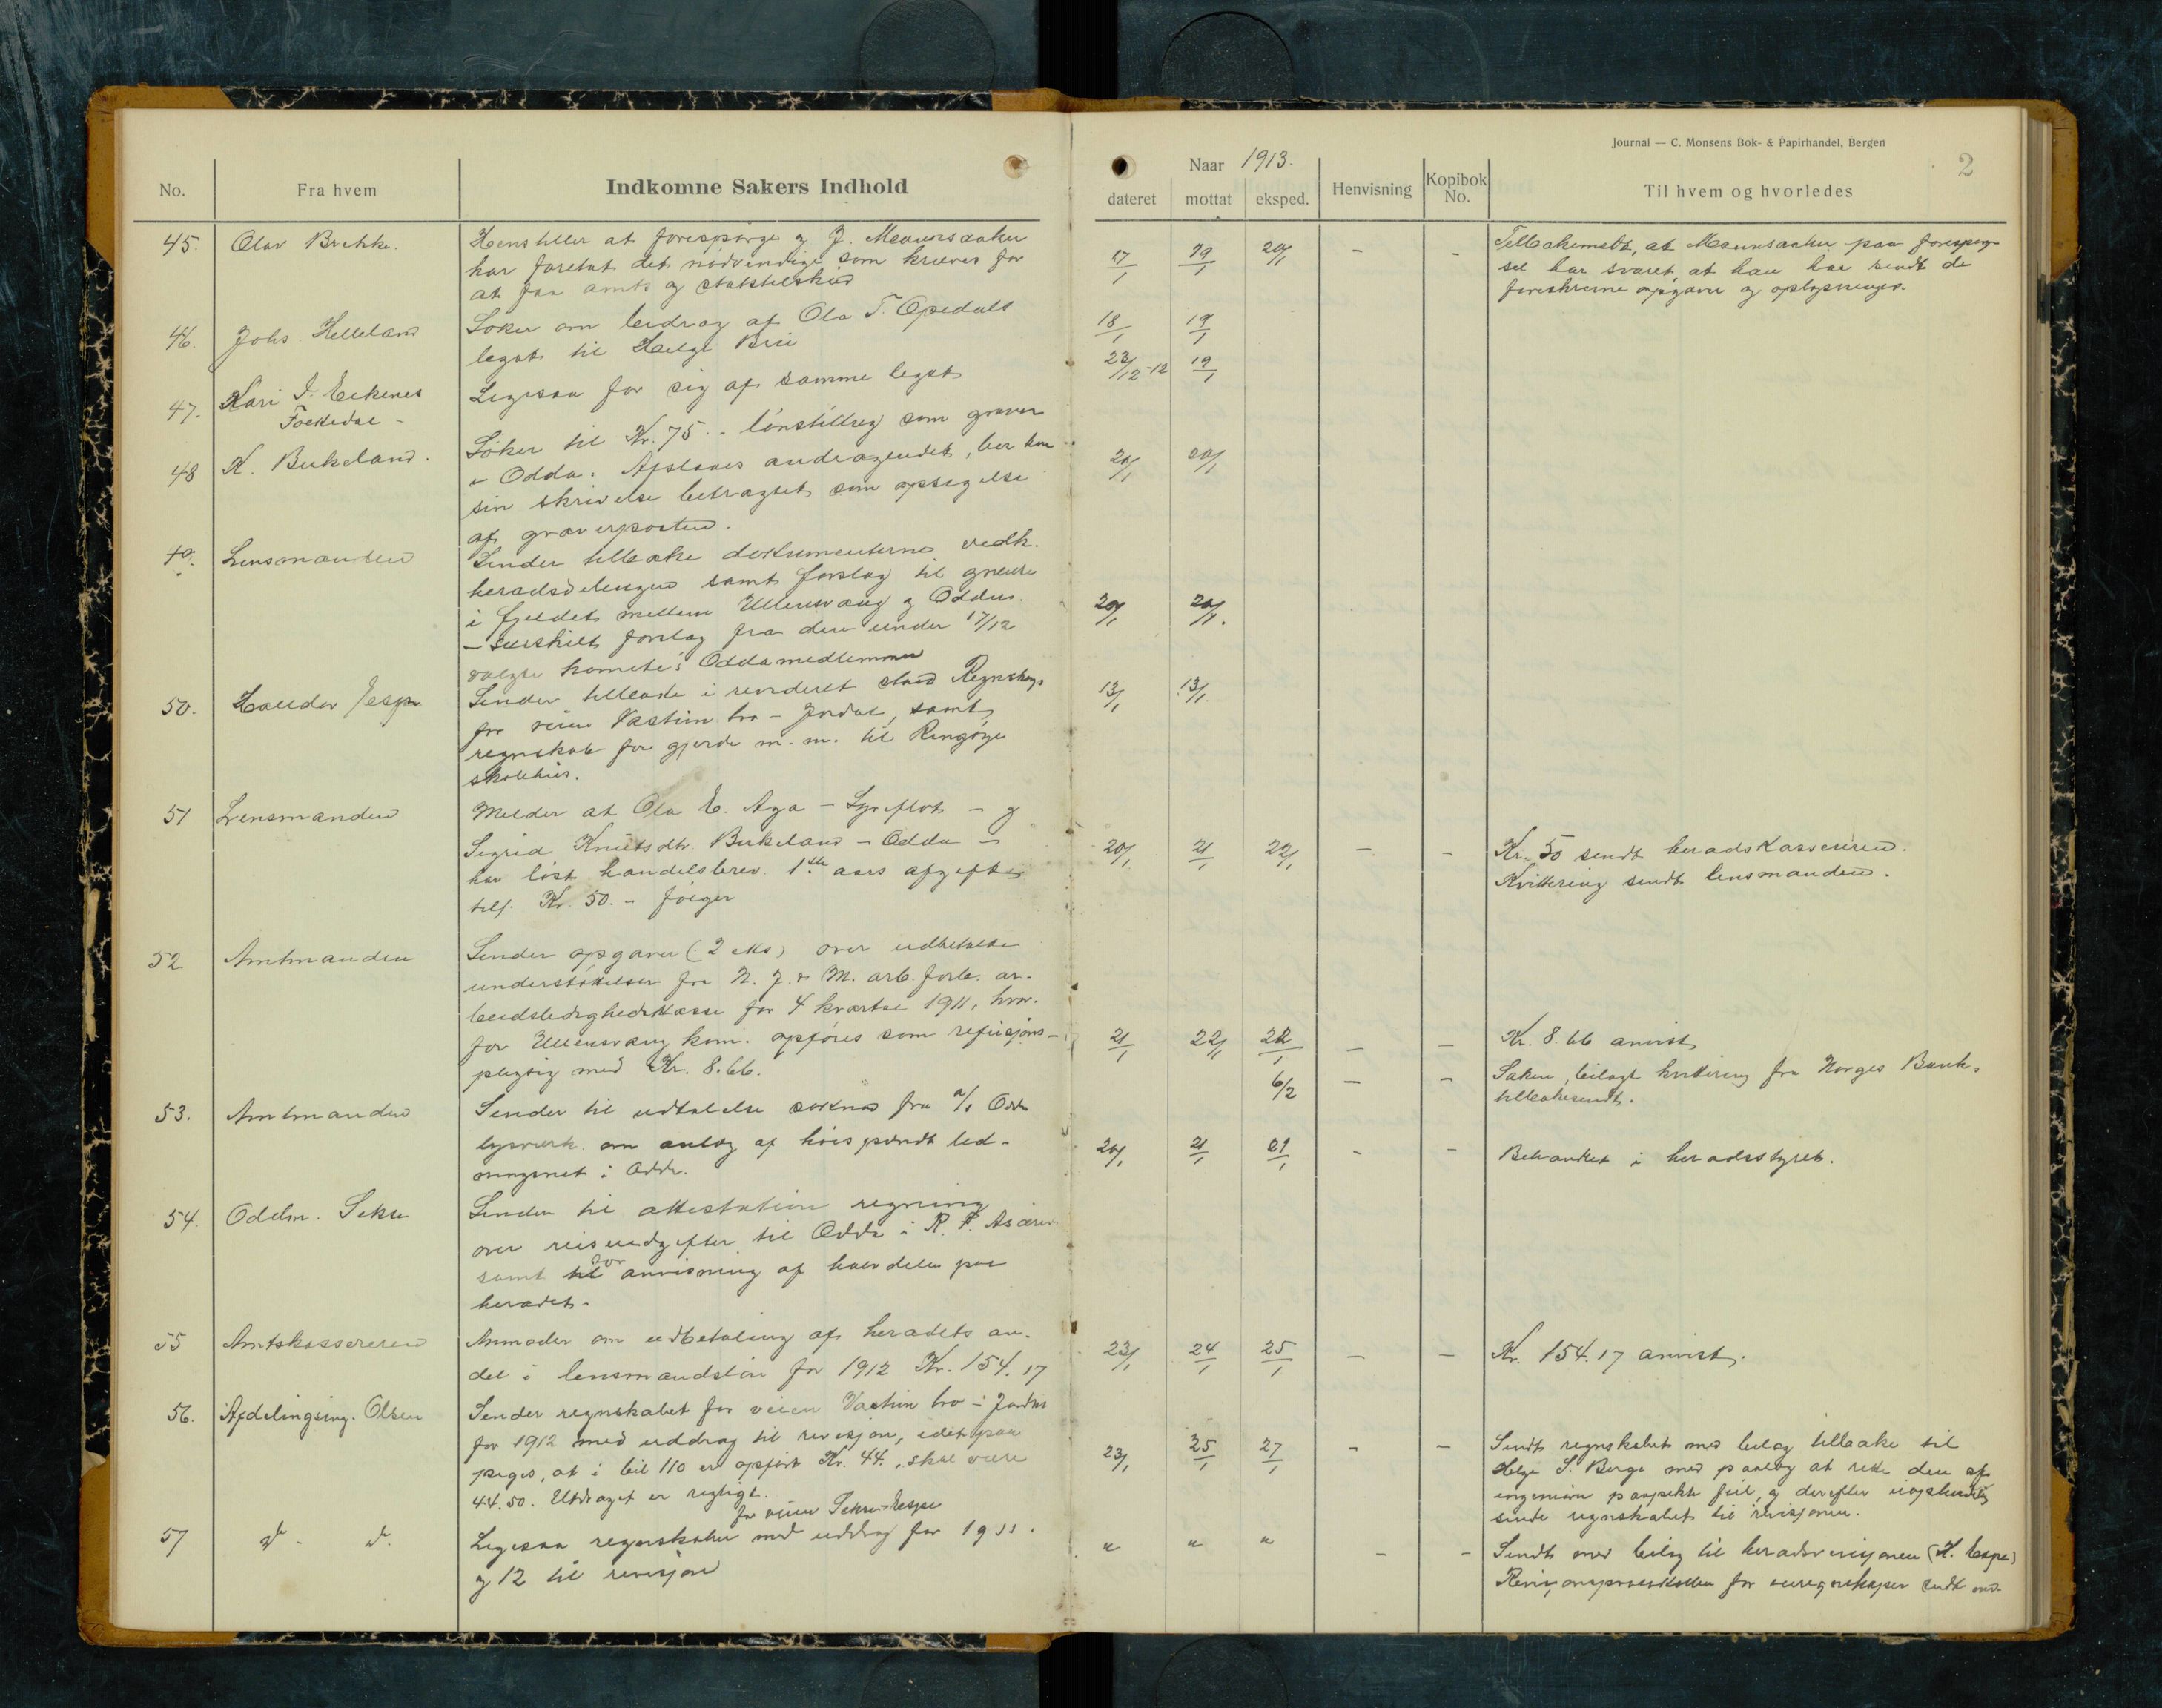 Journal — C. Monsens Bok- & Papirhandel, Bergen
2
No.
Fra hvem
Indkomne Sakers Indhold
Naar 1913.
dateret
mottat
eksped.
Henvisning
Kopibok No.
Til hvem og hvorledes
45. Olav Brekke. Henstiller at forespørge og J. Maunsanker
har foretat det nødvendige som kræves for
at faa amts og statstilskud
17/1 19/1 20/1 - -
Tilbakemeldt, at Maunsanker paa forespørg-
sel har svaret at han har sendt de
foreskrevne opgaver og oplysninger.
46. Johs. Helleland Søker om bidrag af Ola T. Opedals
legat til Helge Bui
18/1 19/1
47. Kari J. Eikenes
Folkedal -
Ligesaa for sig af samme legat
23/12-12 19/1
48 K. Birkeland. Søker til Kr. 75.- lønstillæg som graver
i Odda. Afslaaes andragendet, ber han
sin skrivelse betragtet som opsigelse
af graverposten.
20/1 20/1
49. Lensmanden Sender tilbake dokumenterne vedk.
heradsdelingen samt forslag til grense
i fjeldet mellem Ullensvang og Odda.
- Særskilt forslag fra den under 17/12
valgte komite's Oddamedlemmer
20/1 20/1.
50. Halldor Espe Sender tilbake i revideret stand Regnskap
for veien Vastun bro - Jordal, samt
regnskab for gjerde m.m. til Ringøy
skolehus.
13/1 13/1.
51 Lensmanden Melder at Ola E. Aga - Lyreflot - og
Sigrid Knutsdtr. Birkeland - Odda -
har løst handelsbrev. 1ste aars afgifter
tils. Kr. 50.- følger
20/1 21/1 22/1 - -
Kr. 50 sendt heradskassereren.
Kvittering sendt lensmanden.
52 Amtmanden Sender opgaver (2 eks) over udbetalte
understøttelser fra N. J. & M. arb. forb. ar-
beidsledighedskasse for 4 kvartal 1911, hvor-
for Ullensvang kom. opføres som refusjons-
pligtig med Kr. 8.66.
21/1 22/1 22/1 - -
Kr. 8.66 anvist
6/2 - -
Saken, bilagt kvittering fra Norges Bank,
tilbakesendt.
53. Amtmanden Sender til udtalelse søknad fra A/S Odda
lysverk om anlæg af høispændt led-
ningsnet i Odda.
20/1 21/1 21/1 - -
Behandlet i heradsstyret.
54. Odelm. Sekse Sender til attestation regning
over reiseudgifter til Odda i R. F. Asærens
samt til anvisning af halvdelen paa
heradet.
55 Amtskassereren Anmoder om udbetaling af heradets an-
del i lensmandsløn for 1912 Kr. 154.17
23/1 24/1 25/1 - -
Kr. 154.17 anvist.
56. Afdelingsing. Olsen Sender regnskabet for veien Vastun bro - Jordal
for 1912 med uddrag til revisjon, idet paa-
peges, at i bil 110 er opført Kr. 44., skal være
44.50. Utdraget er rigtigt.
23/1 25/1 27/1 - -
Sendt regnskabet med bilag tilbake til
Helge S. Berge med paalæg at rette den af
ingeniøren paapekte feil, og derefter uopholdelig
sende regnskabet til revisjonen.
57 do. do. Ligesaa regnskaber for veien Sekse-Espe med uddrag for 1911.
og 12 til revisjon
" " " - -
Sendt med bilag til heradsrevisjonen (H. Espe)
Revisjonsprotokollen for veiregnskaper sendt med